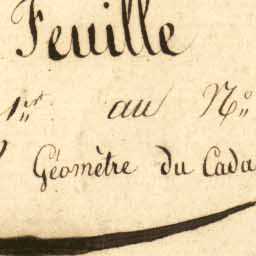 Feuille
1er au No
Géomètre du Cada